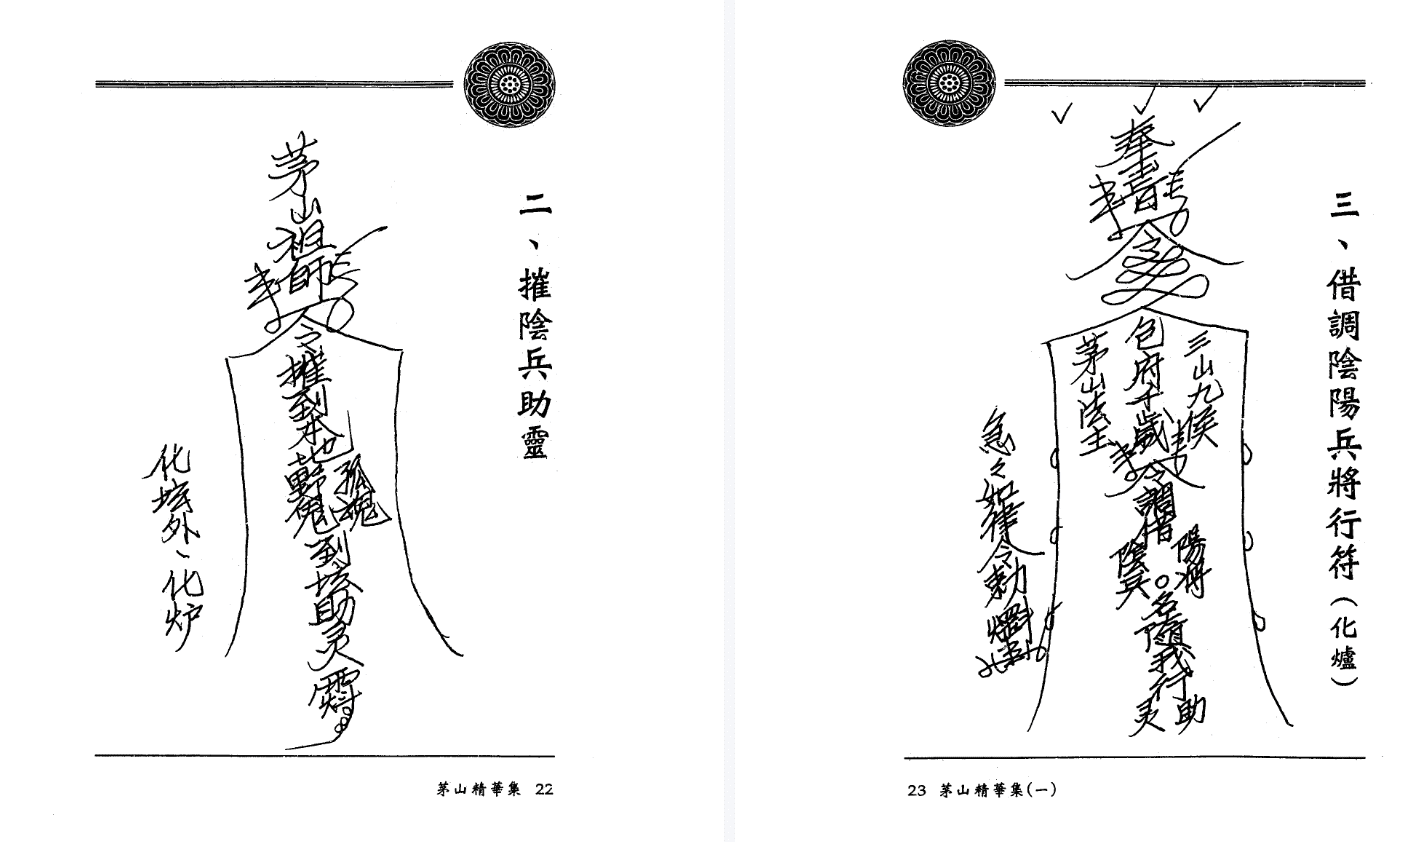 二、摧陰兵助靈
茅山祖師
令摧到本地
孤魂
野鬼
到坛助灵
化坛外、化炉
茅山精華集 22
三、借調陰陽兵將行符（化爐）
奉
旨
三山九侯
包府千歲
茅山法主
令調借
陽將
陰兵
名隨我行
助
灵
急々如律令勅
23 茅山精華集(一)